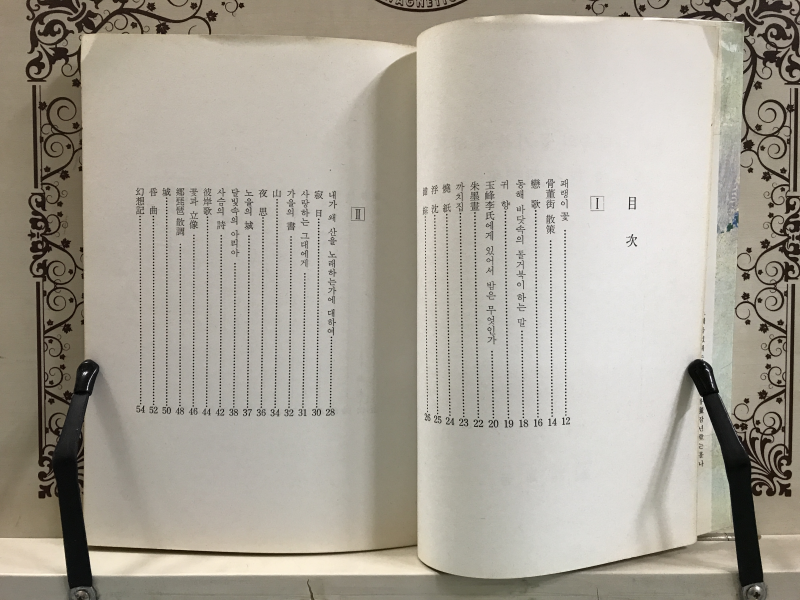 目次
I
패랭이 꽃 12
骨董街 散策 14
戀歌 16
동해 바닷속의 돌거북이 하는 말 18
귀향 19
玉峰李氏에게 있어서 밤은 무엇인가 20
朱墨畫 22
까치집 23
燒紙 24
浮沈 25
26
II
내가 왜 산을 노래하는가에 대하여 28
寂日 30
사랑하는 그대에게 31
가을의 書 32
山 34
夜思 36
노을의 城 37
달빛속의 아리아 38
사슴의 詩 42
彼岸歌 44
꽃과 立像 46
鄕琵琶 散調 48
城 50
昏曲 52
幻想記 54